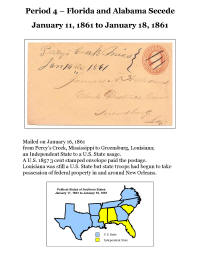 Period 4 – Florida and Alabama Secede
January 11, 1861 to January 18, 1861
Percy's Creek Miss
Jan 16th 1861
Mailed on January 16, 1861
from Percy's Creek, Mississippi to Greensburg, Louisiana;
an Independent State to a U.S. State usage.
A U.S. 1857 3 cent stamped envelope paid the postage.
Louisiana was still a U.S. State but state troops had begun to take
possession of federal property in and around New Orleans.
Political Status of Southern States
January 11, 1861 to January 18, 1861
U.S. State
Independent State